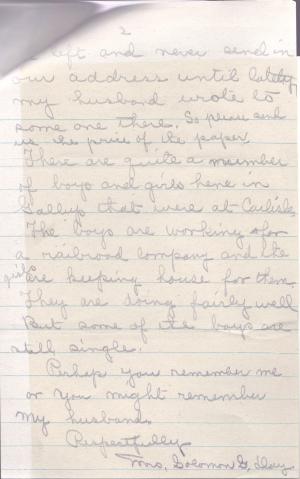 2
left and never send in
our address until lately
my husband wrote to
some one there. So please send
us the price of the paper.
There are quite a number
of boys and girls here in
Gallup that were at Carlisle.
The boys are working for
a railroad company and the
girls are keeping house for them.
They are doing fairly well
But some of the boys are
still single.
Perhap you remember me
or you might remember
my husband.
Respectfully
Mrs. Solomon G.